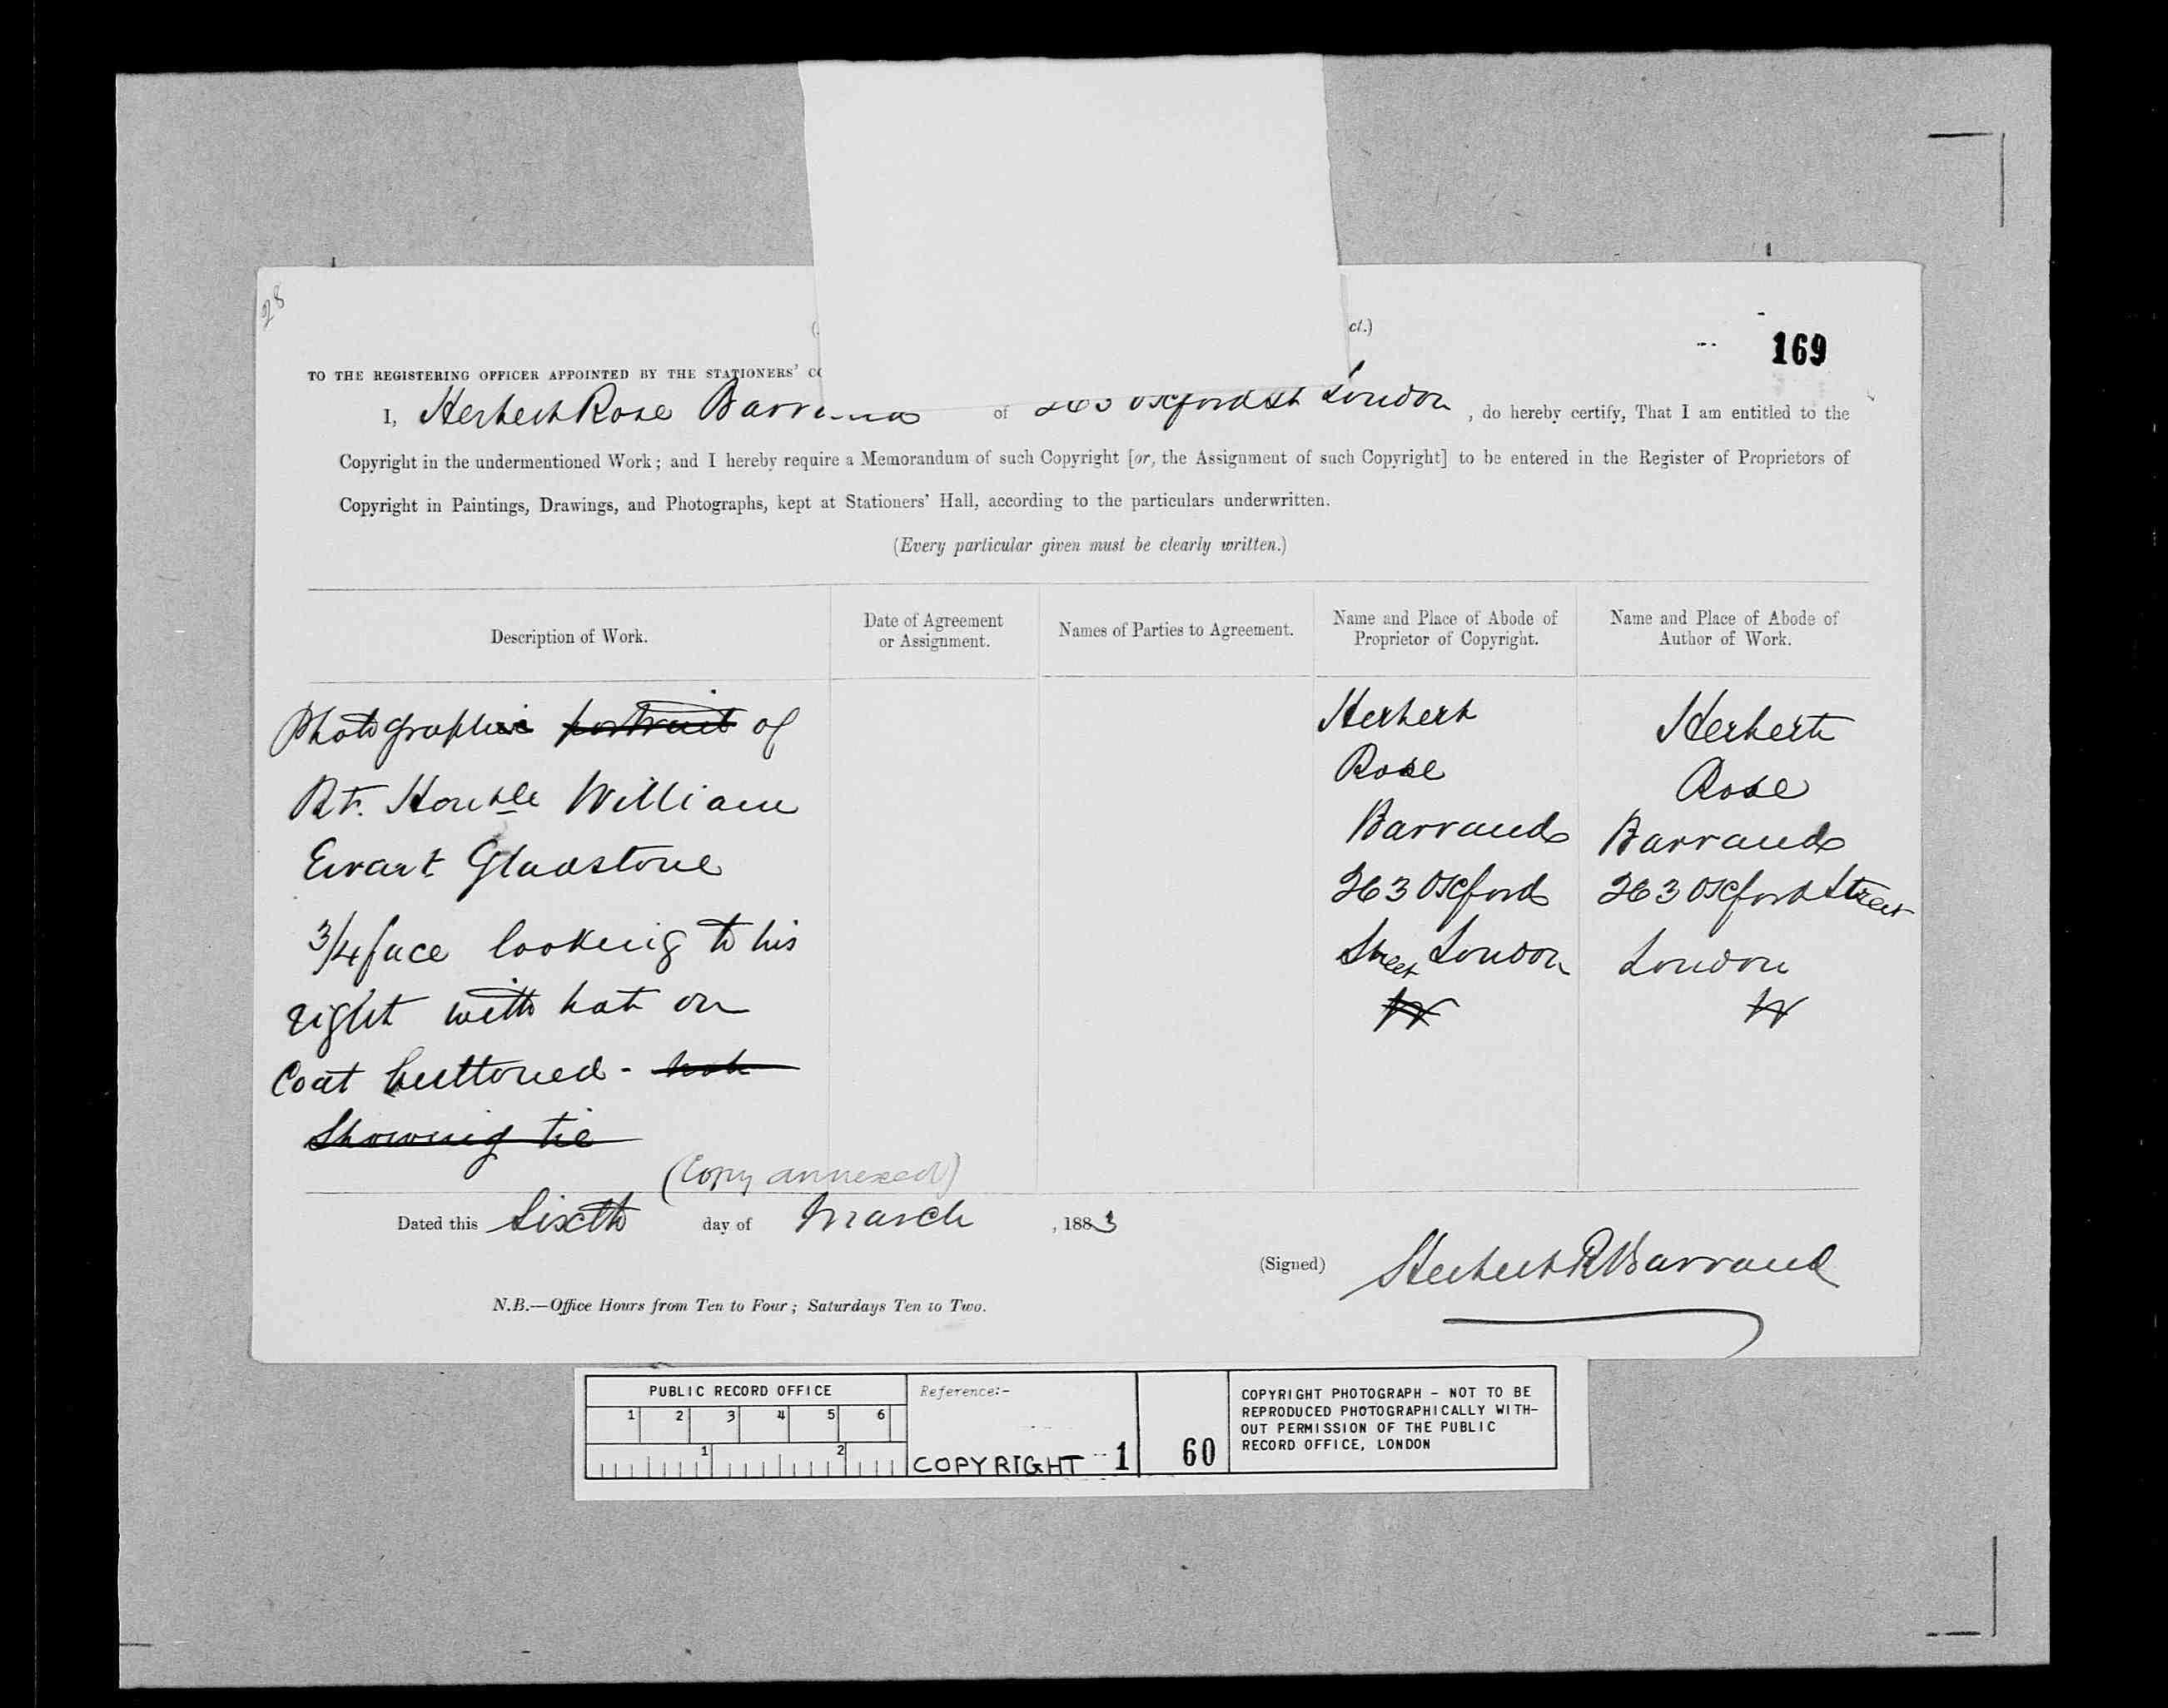 28
ct.)
169
TO THE REGISTERING OFFICER APPOINTED BY THE STATIONERS'
I, Herbert Rose Barraud of 263 Oxford St London, do hereby certify, That I am entitled to the
Copyright in the undermentioned Work; and I hereby require a Memorandum of such Copyright [or, the Assignment of such Copyright] to be entered in the Register of Proprietors of
Copyright in Paintings, Drawings, and Photographs, kept at Stationers' Hall, according to the particulars underwritten.
(Every particular given must be clearly written.)
Description of Work.
Date of Agreement
or Assignment.
Names of Parties to Agreement.
Name and Place of Abode of
Proprietor of Copyright.
Name and Place of Abode of
Author of Work.
Photographic portrait of
Rt. Honble William
Ewart Gladstone
3/4 face looking to his
right with hat on
Coat buttoned - not
Showing tie
(Copy annexed)
Herbert
Rose
Barraud
263 Oxford
Street London
W
Herbert
Rose
Barraud
263 Oxford Street
London
W
Dated this Sixth day of March, 1883
(Signed) Herbert R Barraud
N.B.—Office Hours from Ten to Four; Saturdays Ten to Two.
PUBLIC RECORD OFFICE
1 2 3 4 5 6
1 2
Reference:-
COPYRIGHT 1
60
COPYRIGHT PHOTOGRAPH - NOT TO BE
REPRODUCED PHOTOGRAPHICALLY WITH-
OUT PERMISSION OF THE PUBLIC
RECORD OFFICE, LONDON